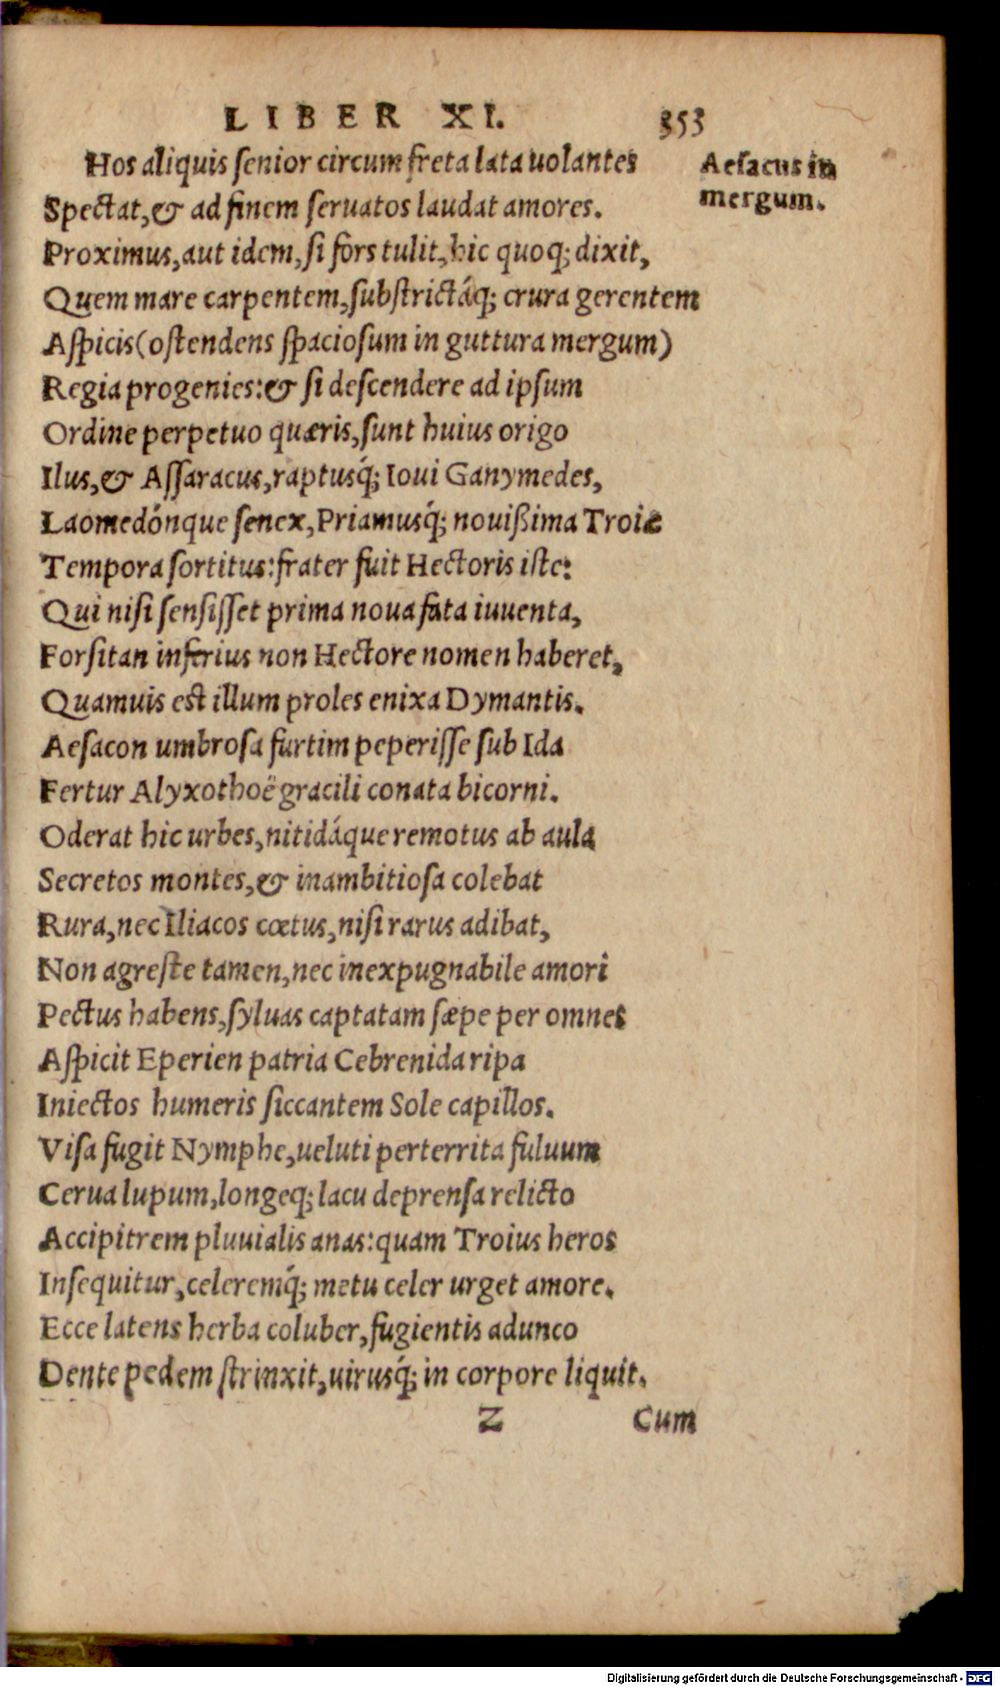 LIBER XI. 353
Hos aliquis ſenior circum freta lata uolantes
Aeſacus in
mergum.
Spectat,& ad finem ſeruatos laudat amores.
Proximus,aut idem,ſi fors tulit,hic quoq; dixit,
Quem mare carpentem,ſubſtrictáq; crura gerentem
Aſpicis(oſtendens ſpacioſum in guttura mergum)
Regia progenies:& ſi deſcendere ad ipſum
Ordine perpetuo quæris,ſunt huius origo
Ilus,& Aſſaracus,raptusq́; Ioui Ganymedes,
Laomedónque ſenex,Priamusq́; nouißima Troie
Tempora ſortitus:frater fuit Hectoris iſte:
Qui niſi ſenſiſſet prima noua fata iuuenta,
Forſitan inferius non Hectore nomen haberet,
Quamuis eſt illum proles enixa Dymantis.
Aeſacon umbroſa furtim peperiſſe ſub Ida
Fertur Alyxothoë gracili conata bicorni.
Oderat hic urbes,nitidáque remotus ab aula
Secretos montes,& inambitioſa colebat
Rura,nec Iliacos cœtus,niſi rarus adibat,
Non agreſte tamen,nec inexpugnabile amori
Pectus habens,ſyluas captatam ſæpe per omnes
Aſpicit Eperien patria Cebrenida ripa
Iniectos humeris ſiccantem Sole capillos.
Viſa fugit Nymphe,ueluti perterrita fuluum
Cerua lupum,longeq; lacu deprenſa relicto
Accipitrem pluuialis anas:quam Troius heros
Inſequitur,celeremq́; metu celer urget amore.
Ecce latens herba coluber,fugientis adunco
Dente pedem ſtrinxit,uirusq́; in corpore liquit.
Z Cum
Digitalisierung gefördert durch die Deutsche Forschungsgemeinschaft - DFG